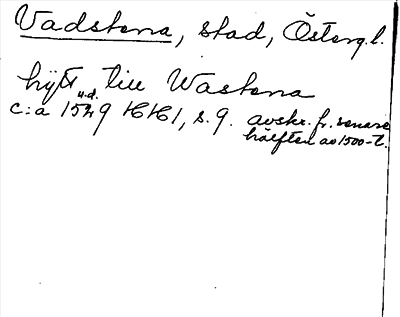 Vadstena, stad, Österg.l.
hijt till Wastena
u.d.
c:a 1529 HH1, s. 9. avskr. fr. senare
hälften av 1500-t.